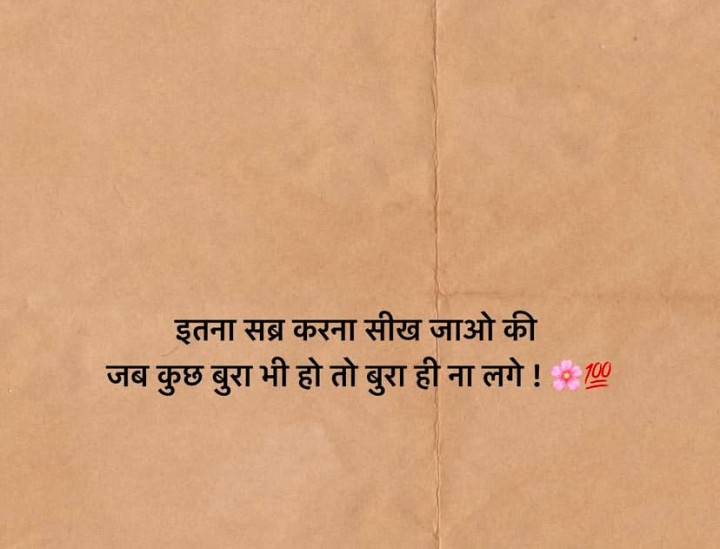 इतना सब्र करना सीख जाओ की
जब कुछ बुरा भी हो तो बुरा ही ना लगे ! 🌸💯